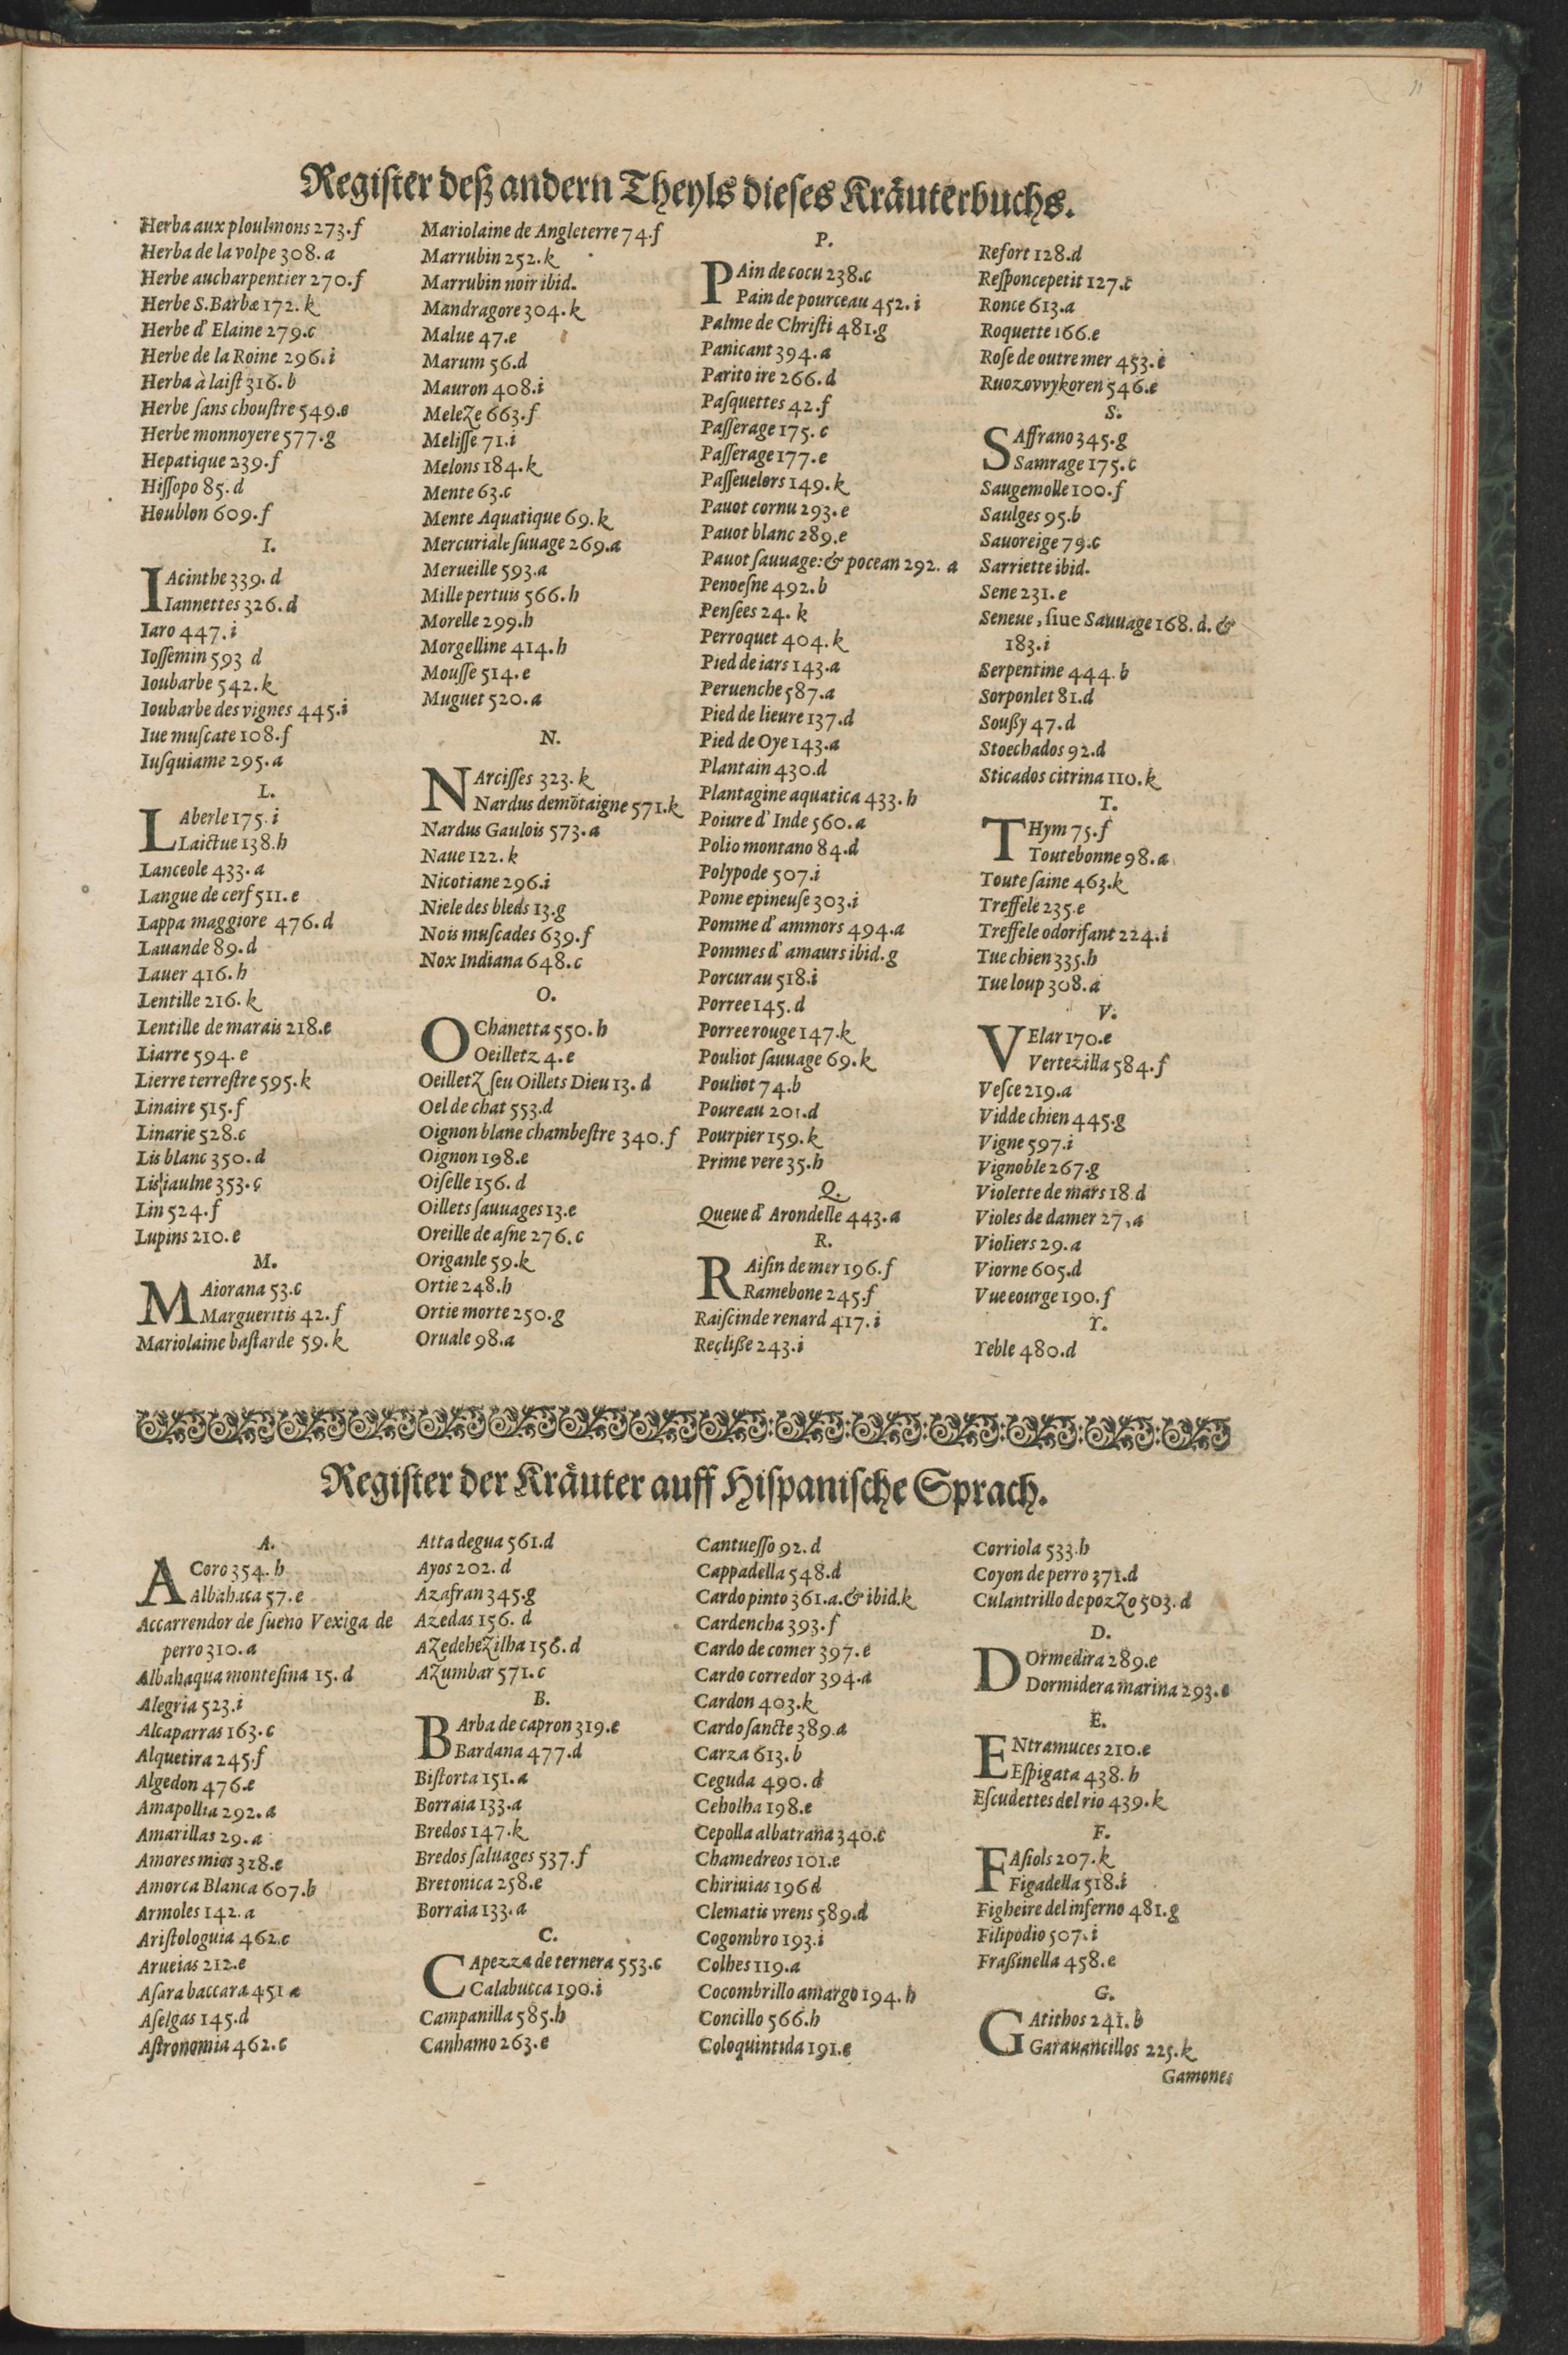 Register deß andern Theyls dieses Kräuterbuchs.
Herba aux ploulmons 273.f
Herba de la volpe 308.a
Herbe aucharpentier 270.f
Herbe S.Barbæ 172.k
Herbe d' Elaine 279.c
Herbe de la Roine 296.i
Herba à laiſt 316.b
Herbe ſans chouſtre 549.e
Herbe monnoyere 577.g
Hepatique 239.f
Hiſſopo 85.d
Houblon 609.f
I.
IAcinthe 339.d
Iannettes 326.d
Iaro 447.i
Ioſſemin 593 d
Ioubarbe 542.k
Ioubarbe des vignes 445.i
Iue muſcate 108.f
Iuſquiame 295.a
L.
LAberle 175.i
Laictue 138.h
Lanceole 433.a
Langue de cerf 511.e
Lappa maggiore 476.d
Lauande 89.d
Lauer 416.h
Lentille 216.k
Lentille de marais 218.e
Liarre 594.e
Lierre terreſtre 595.k
Linaire 515.f
Linarie 528.c
Lis blanc 350.d
Lis iaulne 353.c
Lin 524.f
Lupins 210.e
M.
MAiorana 53.c
Margueritis 42.f
Mariolaine baſtarde 59.k
Mariolaine de Angleterre 74.f
Marrubin 252.k
Marrubin noir ibid.
Mandragore 304.k
Malue 47.e
Marum 56.d
Mauron 408.i
Meleze 663.f
Meliſſe 71.i
Melons 184.k
Mente 63.c
Mente Aquatique 69.k
Mercuriale ſuuage 269.a
Merueille 593.a
Mille pertuis 566.h
Morelle 299.h
Morgelline 414.h
Mouſſe 514.e
Muguet 520.a
N.
NArciſſes 323.k
Nardus demõtaigne 571.k
Nardus Gaulois 573.a
Naue 122.k
Nicotiane 296.i
Niele des bleds 13.g
Nois muſcades 639.f
Nox Indiana 648.c
O.
OChanetta 550.h
Oeilletz 4.e
Oeilletz ſeu Oillets Dieu 13.d
Oel de chat 553.d
Oignon blanc chambeſtre 340.f
Oignon 198.e
Oiſelle 156.d
Oillets ſauuages 13.e
Oreille de aſne 276.c
Origanle 59.k
Ortie 248.h
Ortie morte 250.g
Oruale 98.a
P.
PAin de cocu 238.c
Pain de pourceau 452.i
Palme de Chriſti 481.g
Panicant 394.a
Parito ire 266.d
Paſquettes 42.f
Paſſerage 175.c
Paſſerage 177.e
Paſſeuelors 149.k
Pauot cornu 293.e
Pauot blanc 289.e
Pauot ſauuage: & pocean 292.a
Penoeſne 492.b
Penſees 24.k
Perroquet 404.k
Pied de iars 143.a
Peruenche 587.a
Pied de lieure 137.d
Pied de Oye 143.a
Plantain 430.d
Plantagine aquatica 433.h
Poiure d' Inde 560.a
Polio montano 84.d
Polypode 507.i
Pome epineuſe 303.i
Pomme d' ammors 494.a
Pommes d' amaurs ibid.g
Porcurau 518.i
Porree 145.d
Porree rouge 147.k
Pouliot ſauuage 69.k
Pouliot 74.b
Poureau 201.d
Pourpier 159.k
Prime vere 35.h
Q.
Queue d' Arondelle 443.a
R.
RAiſin de mer 196.f
Ramebone 245.f
Raiſcinde renard 417.i
Recliße 243.i
Refort 128.d
Reſponcepetit 127.c
Ronce 613.a
Roquette 166.e
Roſe de outre mer 453.e
Ruozovvykoren 546.e
S.
SAffrano 345.g
Samrage 175.c
Saugemolle 100.f
Saulges 95.b
Sauoreige 79.c
Sarriette ibid.
Sene 231.e
Seneue, ſiue Sauuage 168.d. &
183.i
Serpentine 444.b
Sorponlet 81.d
Soußy 47.d
Stoechados 92.d
Sticados citrina 110.k
T.
THym 75.f
Toutebonne 98.a
Toute ſaine 463.k
Treffele 235.e
Treffele odorifant 224.i
Tue chien 335.h
Tue loup 308.a
V.
VElar 170.e
Vertezilla 584.f
Veſce 219.a
Vidde chien 445.g
Vigne 597.i
Vignoble 267.g
Violette de mars 18.d
Violes de damer 27,a
Violiers 29.a
Viorne 605.d
Vue eourge 190.f
Y.
Yeble 480.d
Register der Kräuter auff Hispanische Sprach.
A.
ACoro 354.h
Albahaca 57.e
Accarrendor de ſueno Vexiga de
perro 310.a
Albahaqua monteſina 15.d
Alegria 523.i
Alcaparras 163.c
Alquetira 245.f
Algedon 476.e
Amapollia 292.a
Amarillas 29.a
Amores mios 328.e
Amorca Blanca 607.b
Armoles 142.a
Ariſtologuia 462.c
Arueias 212.e
Aſara baccara 451 a
Aſelgas 145.d
Aſtronomia 462.c
Atta degua 561.d
Ayos 202.d
Azafran 345.g
Azedas 156.d
Azedehezilha 156.d
Azumbar 571.c
B.
BArba de capron 319.e
Bardana 477.d
Biſtorta 151.a
Borraia 133.a
Bredos 147.k
Bredos ſaluages 537.f
Bretonica 258.e
Borraia 133.a
C.
CApezza de ternera 553.c
Calabucca 190.i
Campanilla 585.h
Canhamo 263.e
Cantueſſo 92.d
Cappadella 548.d
Cardo pinto 361.a.& ibid.k
Cardencha 393.f
Cardo de comer 397.e
Cardo corredor 394.a
Cardon 403.k
Cardo ſancte 389.a
Carza 613.b
Ceguda 490.d
Cebolha 198.e
Cepolla albatrana 340.c
Chamedreos 101.e
Chiriuias 196 d
Clematis vrens 589.d
Cogombro 193.i
Colhes 119.a
Cocombrillo amargo 194.h
Concillo 566.h
Coloquintida 191.e
Corriola 533.h
Coyon de perro 371.d
Culantrillo de pozzo 503.d
D.
DOrmedira 289.e
Dormidera marina 293.e
E.
ENtramuces 210.e
Eſpigata 438.h
Eſcudettes del rio 439.k
F.
FAſiols 207.k
Figadella 518.i
Figheire del inferno 481.g
Filipodio 507.i
Fraßinella 458.e
G.
GAtithos 241.b
Garauancillos 225.k
Gamones